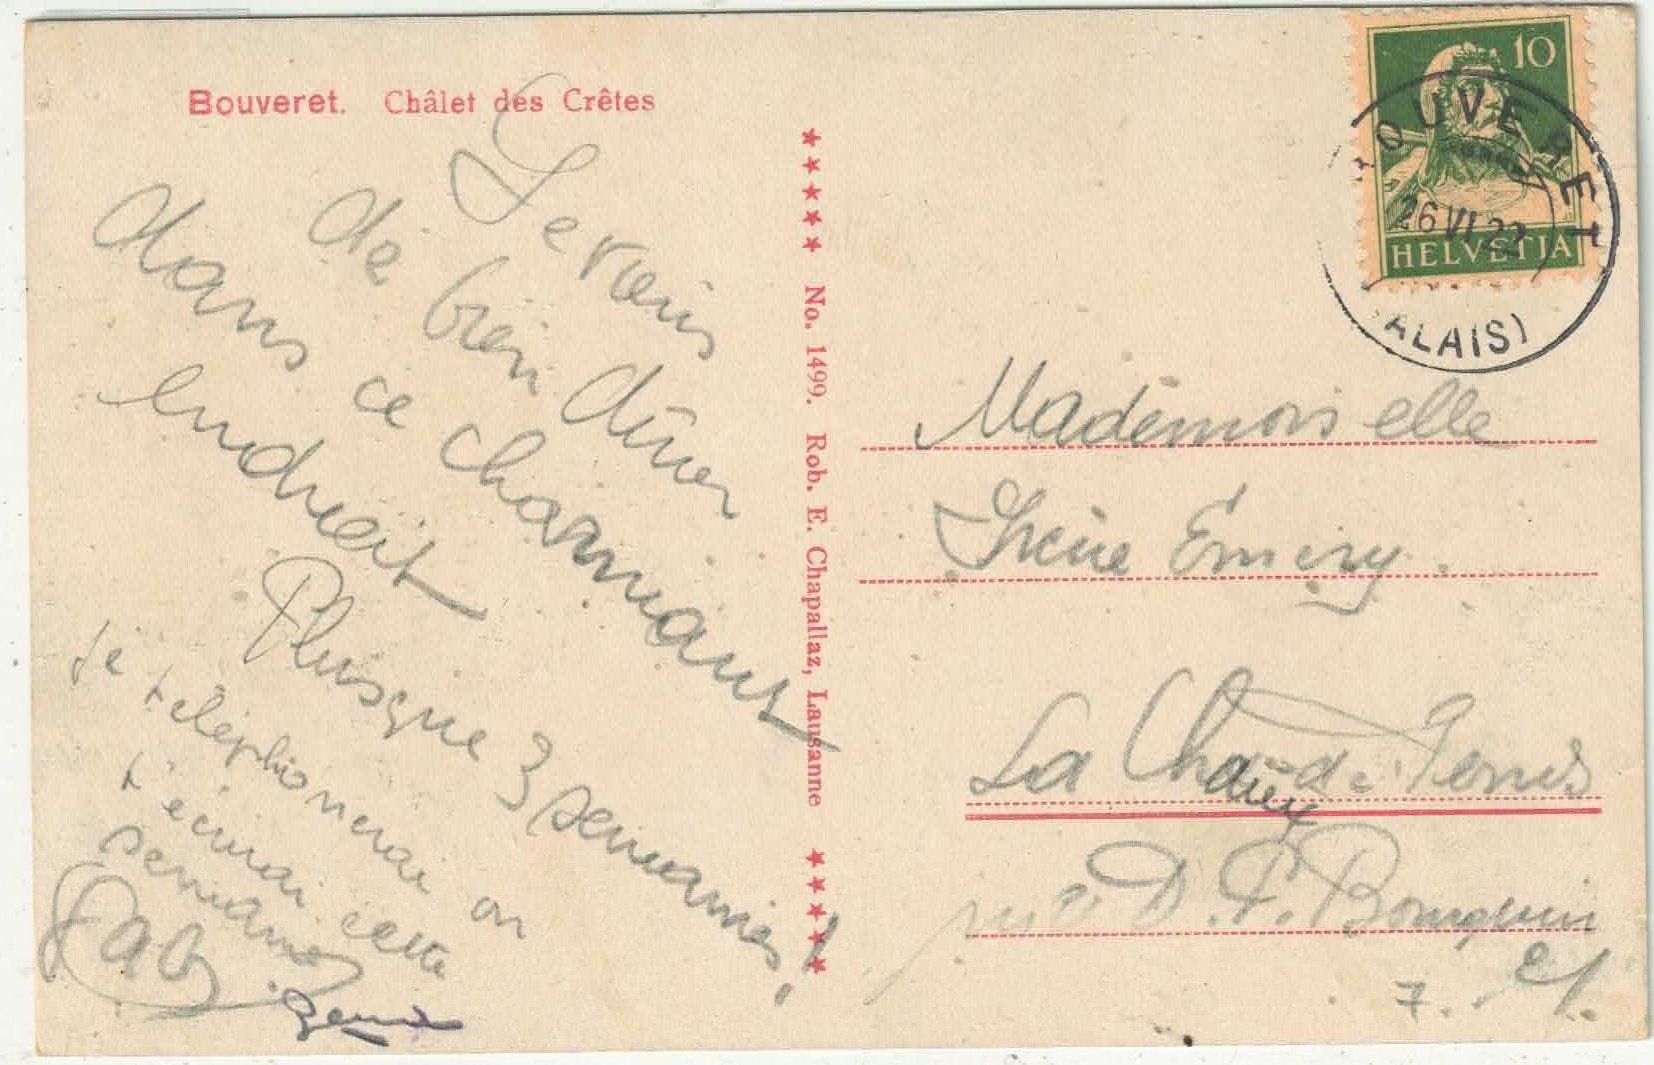 Bouveret. Châlet des Crêtes
Je viens
de bien dîner
dans ce charmant
endroit
Plusque 3 semaines!
Je téléphonerai ou
t'écrirai cette
semaine
No. 1499. Rob. E. Chapallaz, Lausanne
10
HELVETIA
BOUVERET
26 VI 22
(VALAIS)
Mademoiselle
Irène Emery
La Chaux-de-Fonds
D. P. Bourquin
7.